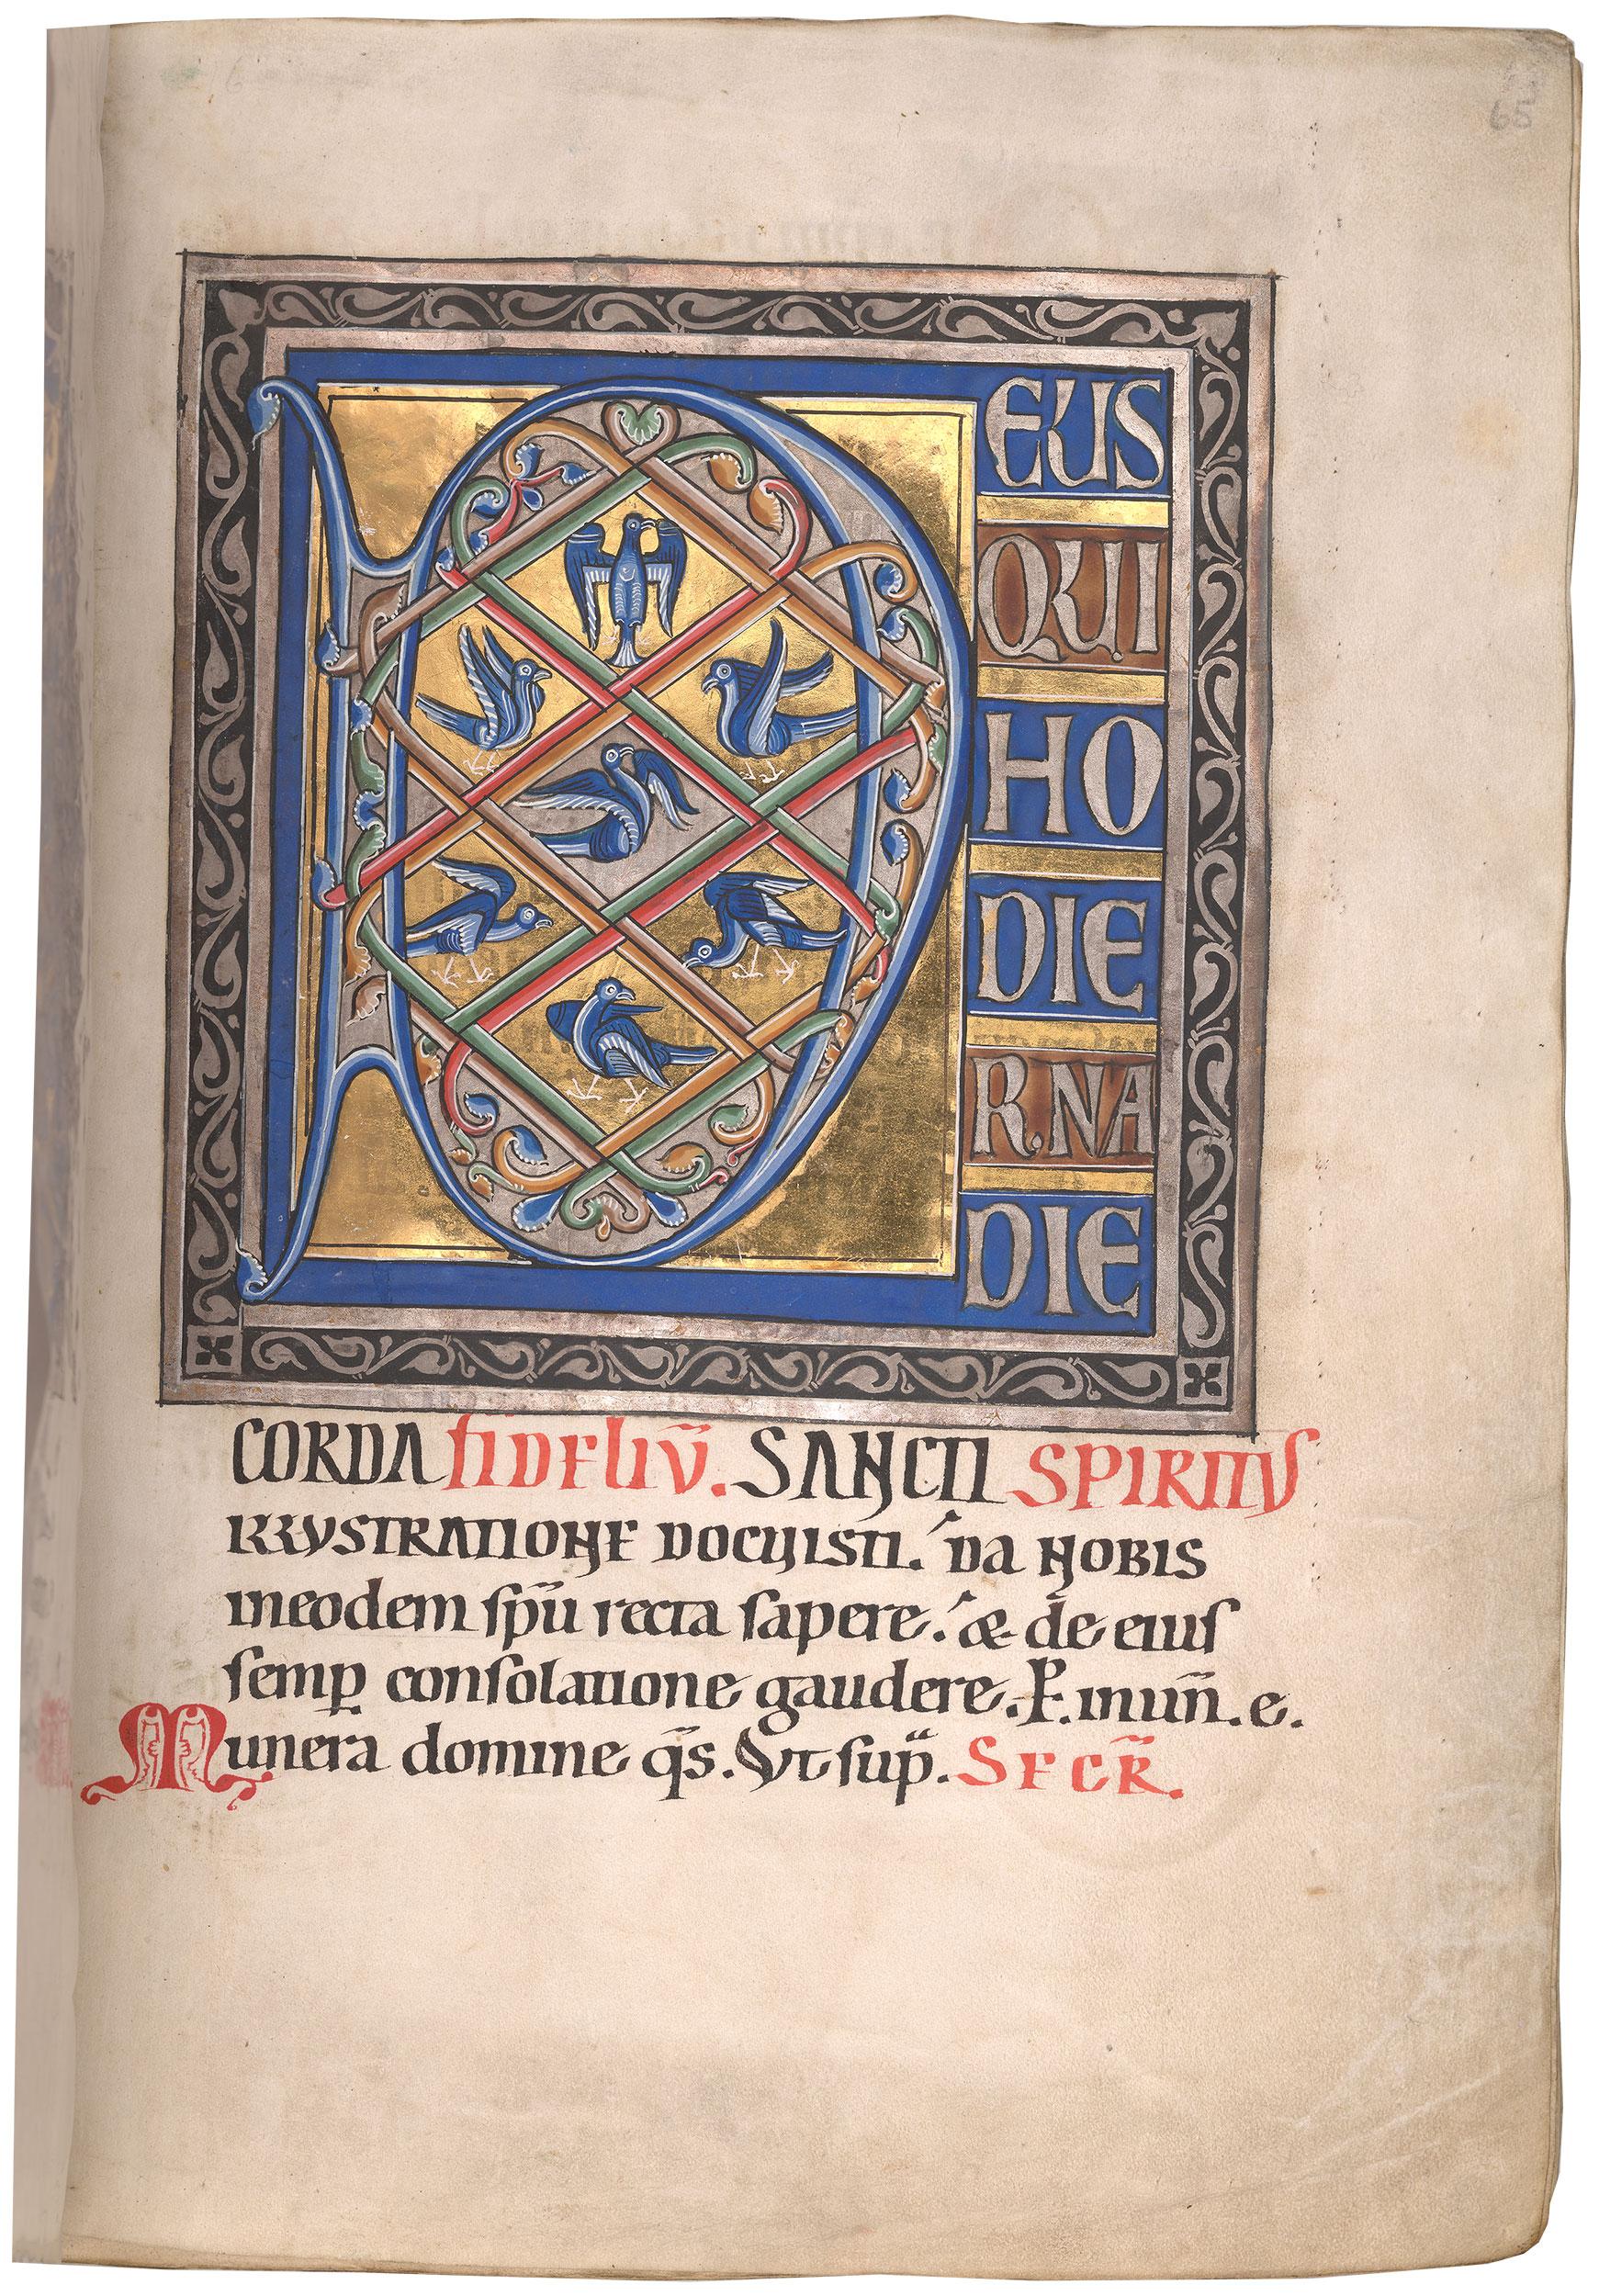 65
DEUS
QUI
HO
DIE
RNA
DIE
CORDA FIDELIU̅. SANCTI SPIRITUS
ILLUSTRATIONE DOCUISTI. DA NOBIS
ineodem sp̅u recta sapere. & de eius
semꝑ consolatione gaudere. P. inun̅. e.
Munera domine q̅s. Ut sup̅. SECR̅.